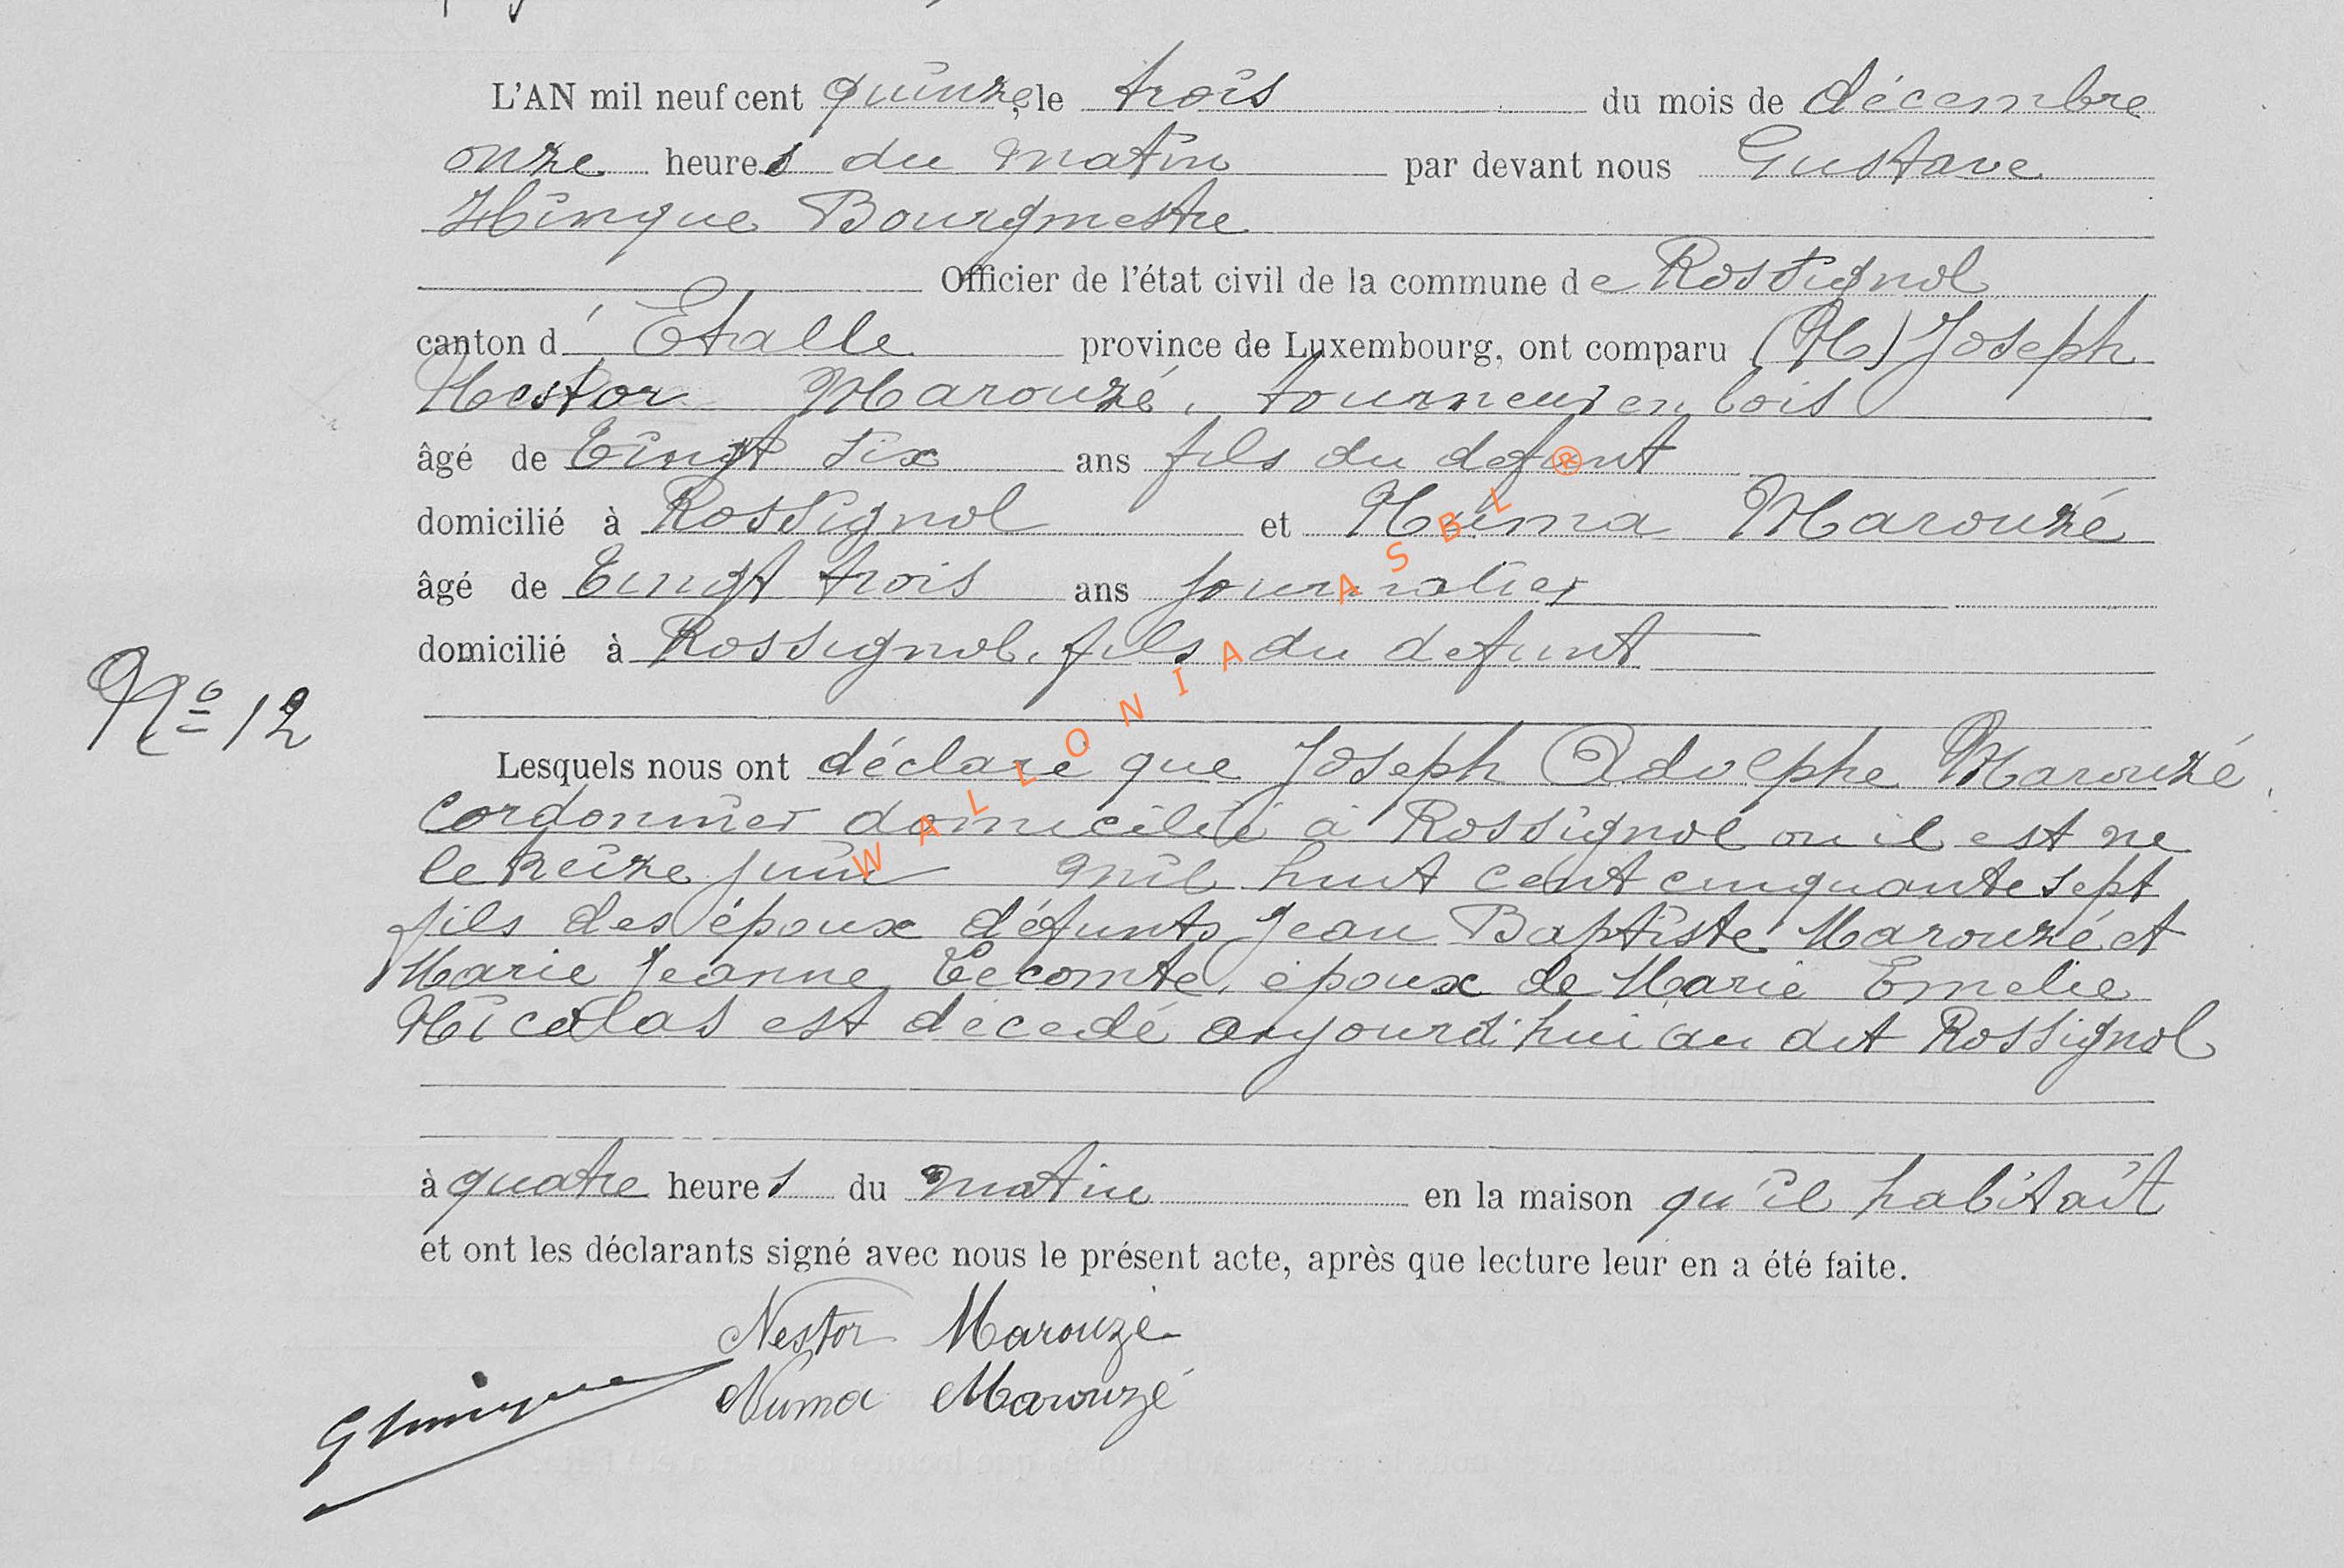 L'AN mil neuf cent quinze, le trois du mois de décembre
onze heures du matin par devant nous Gustave
Hinque Bourgmestre
Officier de l'état civil de la commune de Rossignol
canton d'Etalle province de Luxembourg, ont comparu (N) Joseph
Nestor Marouzé, tourneur en bois
âgé de Vingt six ans fils du defunt
domicilié à Rossignol et Numa Marouzé
âgé de Vingt trois ans journalier
domicilié à Rossignol, fils du defunt
No 12
Lesquels nous ont déclaré que Joseph Adolphe Marouzé
cordonnier domicilié à Rossignol ou il est ne
le treize juin mil huit cent cinquante sept
fils des époux défunts Jean Baptiste Marouzé et
Marie Jeanne Lecomte, époux de Marie Emelie
Nicolas est décedé aujourd'hui au dit Rossignol
à quatre heures du matin en la maison qu'il habitait
et ont les déclarants signé avec nous le présent acte, après que lecture leur en a été faite.
Nestor Marouzé
Numa Marouzé
GHinque
WALLONIA ASBL ®